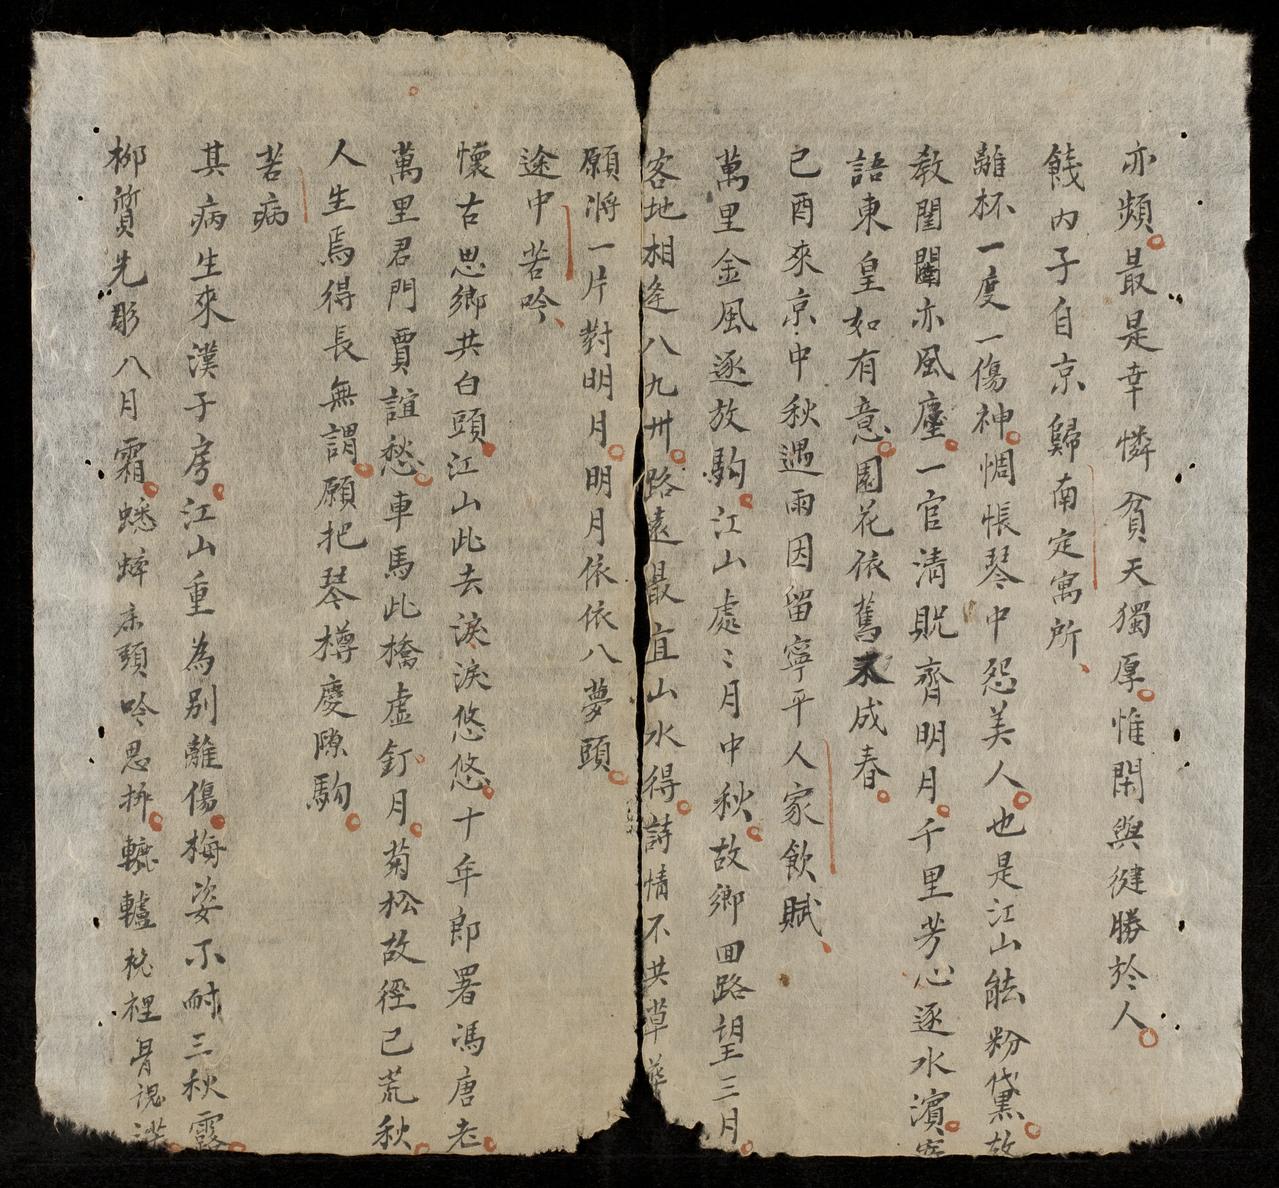 亦頻最是幸憐貧天獨厚惟閑與健勝於人
餞內子自京歸南定寓所
離杯一度一傷神惆悵琴中怨美人也是江山能粉黛故
教閨闥亦風塵一官清貺齊明月千里芳心逐水濱
語東皇如有意園花依舊未成春
己酉來京中秋遇雨因留寧平人家飲賦
萬里金風逐放駒江山處〻月中秋故鄉回路望三月
客地相逢八九卅路遠最宜山水得詩情不共草
願將一片對明月明月依依八夢頭
途中苦吟
懷古思鄉共白頭江山此去淚淚悠悠十年郎署馮唐老
萬里君門賈誼愁車馬此橋虛釘月菊松故徑已荒秋
人生焉得長無謂願把琴樽慶隙駒
苦病
其病生來漢子房江山重為別離傷梅姿不耐三秋露
柳質先彫八月霜蟋蟀床頭吟思拆轆轤枕裡骨